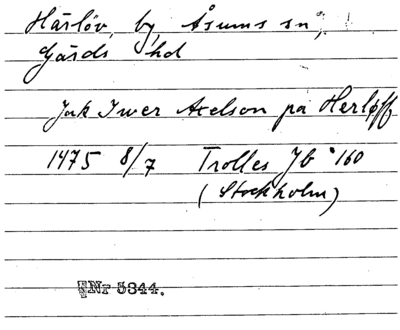 Härlöv, by, Åsums sn,
Gärds hd
Jak Iwer Axelson pa Herløff
1475 8/7 Trolles Jb 160
(Stockholm)
Nr 5344.